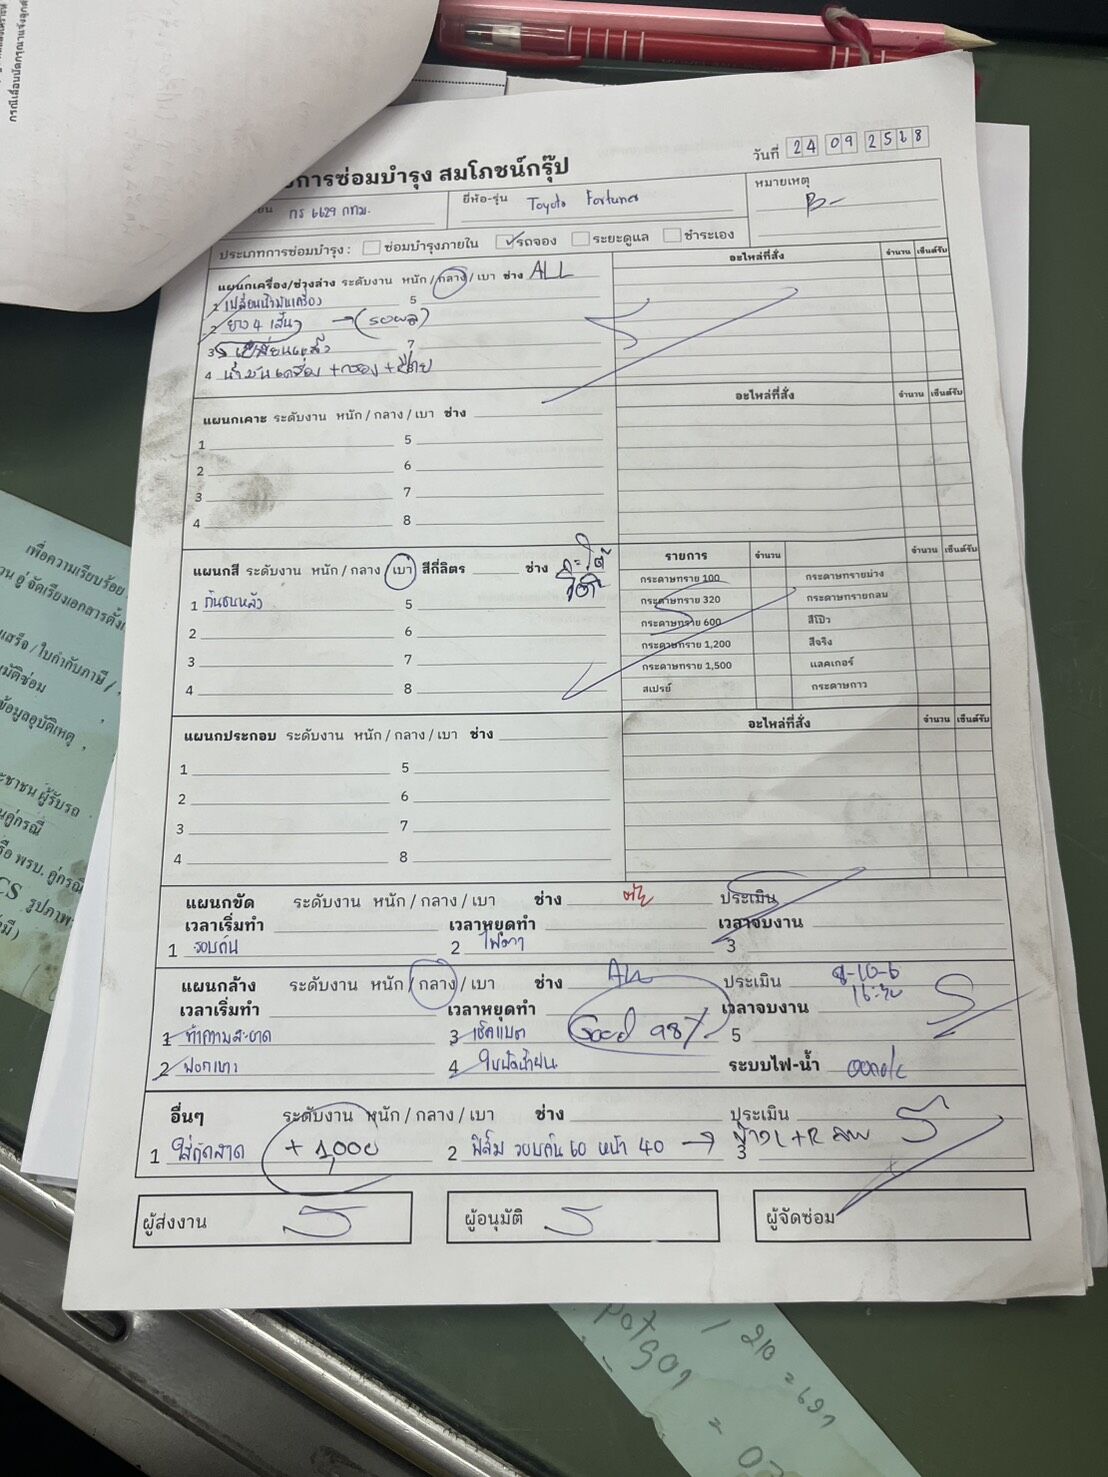 กรณีเลื่อนนัดกรุณาแจ้งลูกค้
การซ่อมบำรุง สมโภชน์กรุ๊ป
วันที่ 24 09 2568
กร 6629 กทม.
ยี่ห้อ-รุ่น Toyota Fortuner
หมายเหตุ
B-
ประเภทการซ่อมบำรุง : ซ่อมบำรุงภายใน รถจอง ระยะดูแล ชำระเอง
แผนกเครื่อง/ช่วงล่าง ระดับงาน หนัก / กลาง / เบา ช่าง ALL
อะไหล่ที่สั่ง จำนวน เซ็นต์รับ
1 เปลี่ยนน้ำมันเครื่อง 5
2 ยาง 4 เส้น → (รอผล)
3 เปลี่ยนแล้ว 7
4 น้ำมันเครื่อง + กรอง +
แผนกเคาะ ระดับงาน หนัก / กลาง / เบา ช่าง
อะไหล่ที่สั่ง จำนวน เซ็นต์รับ
1 5
2 6
3 7
4 8
แผนกสี ระดับงาน หนัก / กลาง / เบา สีกี่ลิตร ช่าง
รายการ จำนวน จำนวน เซ็นต์รับ
1 กันชนหลัง 5
2 6
3 7
4 8
กระดาษทราย 100 กระดาษทรายม่วง
กระดาษทราย 320 กระดาษทรายกลม
กระดาษทราย 600 สีโป๊ว
กระดาษทราย 1,200 สีจริง
กระดาษทราย 1,500 แลคเกอร์
สเปรย์ กระดาษกาว
แผนกประกอบ ระดับงาน หนัก / กลาง / เบา ช่าง
อะไหล่ที่สั่ง จำนวน เซ็นต์รับ
1 5
2 6
3 7
4 8
แผนกขัด ระดับงาน หนัก / กลาง / เบา ช่าง ประเมิน
เวลาเริ่มทำ เวลาหยุดทำ เวลาจบงาน
1 รอบคัน 2 ไฟตา 3
แผนกล้าง ระดับงาน หนัก / กลาง / เบา ช่าง ALL ประเมิน
เวลาเริ่มทำ เวลาหยุดทำ เวลาจบงาน
16:30
1 ทำความสะอาด 3 เช็คแบต Good 98% 5
2 ฟอกเบาะ 4 ใบปัดน้ำฝน ระบบไฟ-น้ำ
อื่นๆ ระดับงาน หนัก / กลาง / เบา ช่าง ประเมิน
1 ใส่ถาดสาด +1,000 2 ฟิล์ม รอบคัน 60 หน้า 40 → 3
ผู้ส่งงาน ผู้อนุมัติ ผู้จัดซ่อม
เพื่อความเรียบร้อย
จัดเรียงเอกสารตั้งแ
เสร็จ / ใบกำกับภาษี /
มัติซ่อม
ข้อมูลอุบัติเหตุ
ะชาชน ผู้รับรถ
นคู่กรณี
รือ พรบ. คู่กรณี
CS รูปภาพ